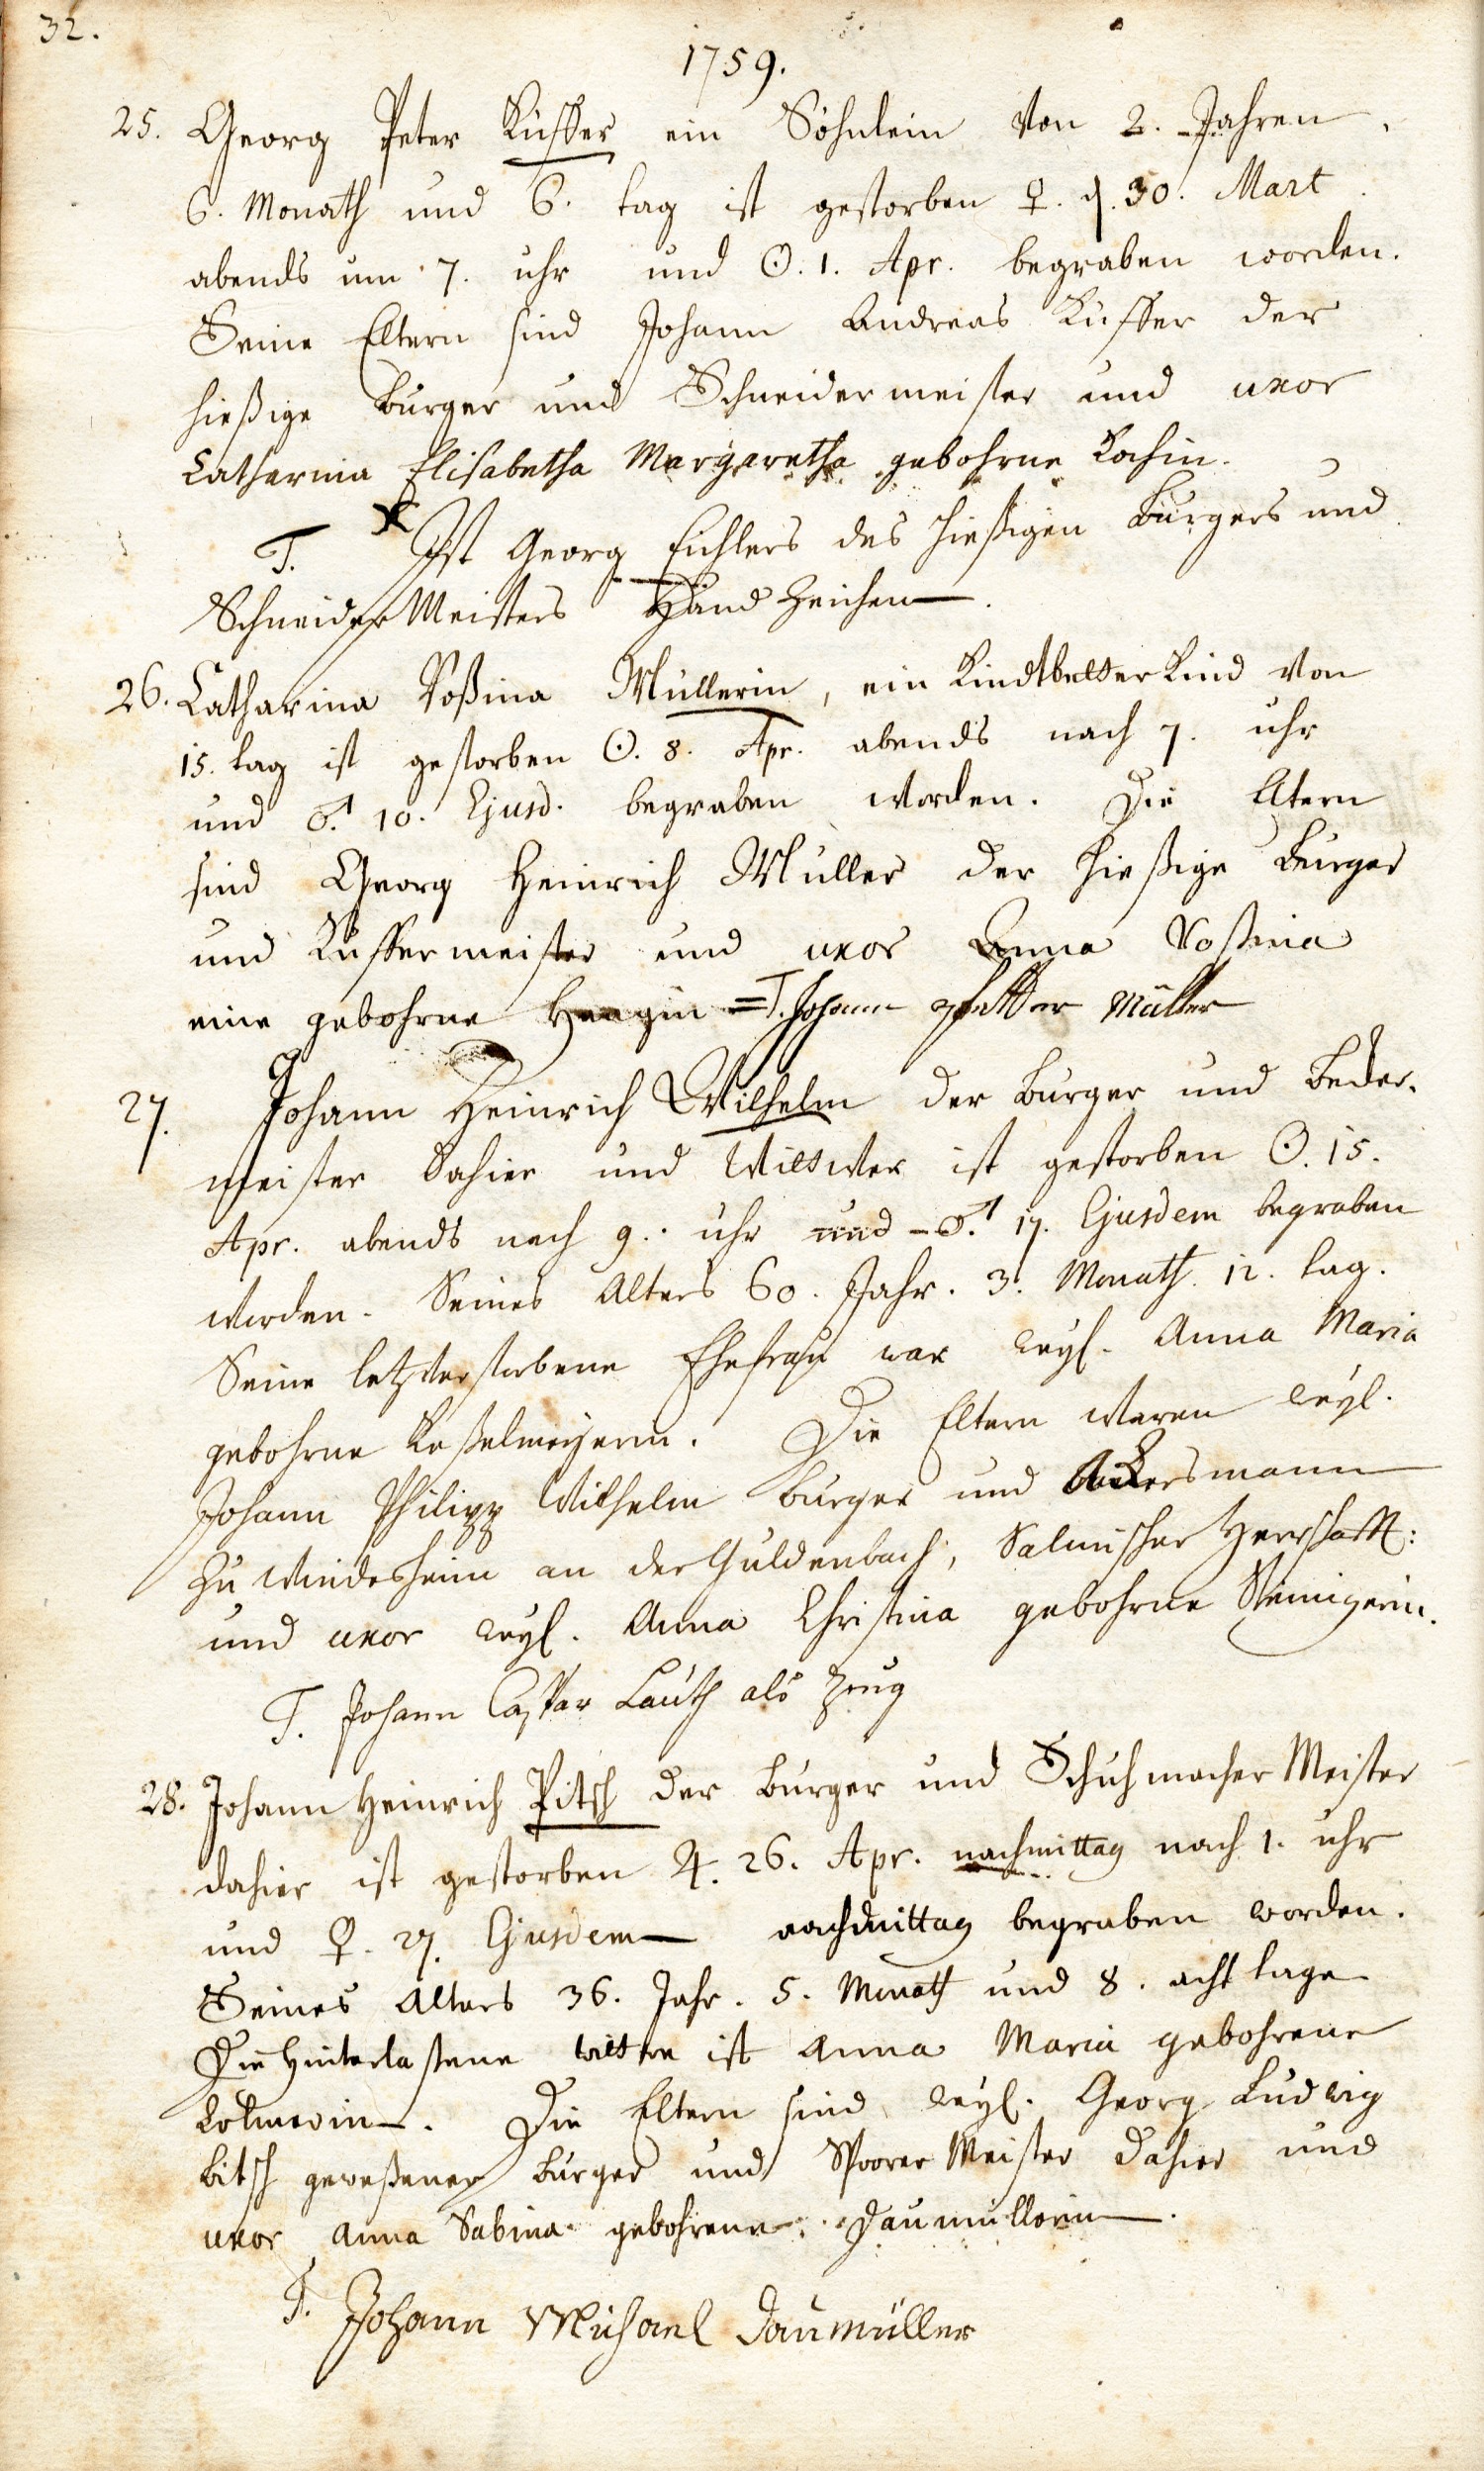 32.
1759.
25. Georg Peter Küffer ein Söhnlein von 2. Jahren,
6. Monath und 6. tag ist gestorben ♀. d. 30. Mart.
abends um 7. uhr und ☉. 1. Apr. begraben worden.
Seine Eltern sind Johann Andreas Küffer der
hießige burger und Schneidermeister und uxor
Catharina Elisabetha Margaretha gebohrne Kochin.
T. X Ist Georg Eichlers des hießigen Burgers und
Schneider Meisters Hand Zeichen.
26. Catharina Roßina Müllerin, ein Kindtbetter Kind von
15. tag ist gestorben ☉. 8. Apr. abends nach 7. uhr
und ♂. 10. Ejusd. begraben worden. Die Eltern
sind Georg Heinrich Müller der hießige Burger
und Küffermeister und uxor Anna Roßina
eine gebohrne Haagin = T. Johann Müller
27. Johann Heinrich Wilhelm der Burger und Beder-
meister dahier und Wittwer ist gestorben ☉. 15.
Apr. abends nach 9. uhr und ♂. 17. Ejusdem begraben
worden. Seines Alters 60. Jahr. 3. Monath. 12. tag.
Seine letztverstorbene Ehefrau war weyl. Anna Maria
gebohrne Keßelmeyerin. Die Eltern waren weyl.
Johann Philipp Wilhelm burger und Ackersmann
zu Windesheim an der Guldenbach, Salmischer Herrschafft:
und uxor weyl. Anna Christina gebohrne Steinigerin.
T. Johann Caspar Lauth als Zeug
28. Johann Heinrich Pitsch der burger und Schuhmacher Meister
dahier ist gestorben ♃. 26. Apr. nachmittag nach 1. uhr
und ♀. 27. Ejusdem nachmittag begraben worden.
Seines Alters 36. Jahr. 5. Monath und 8. acht tage
Die Hinterlaßene wittwe ist Anna Maria gebohrene
Die Eltern sind weyl. Georg Ludwig
bitsch geweßener burger und Spoorer Meister dahier und
uxor Anna Sabina gebohrene Daumüllerin.
T. Johann Michael Daumüller